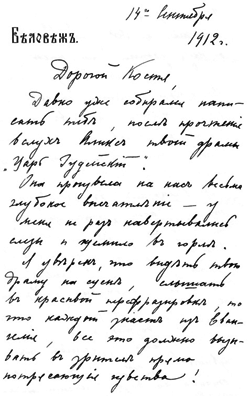 14го Сентября
Бѣловѣжъ. 1912 г.
Дорогой Костя,
Давно уже собирался напи-
сать тебѣ, послѣ прочтенія
вслухъ Аликсъ твоей драмы
„Царь Іудейскій“.
Она произвела на насъ весьма
глубокое впечатлѣніе — у
меня не разъ навертывались
слезы и щемило въ горлѣ.
Я увѣренъ, что видѣть твою
драму на сценѣ, слышать
въ красивой перефразировкѣ, то
что каждый знаетъ изъ Еван-
гелія, все это должно выз-
вать въ зрителѣ прямо
потрясающія чувства!